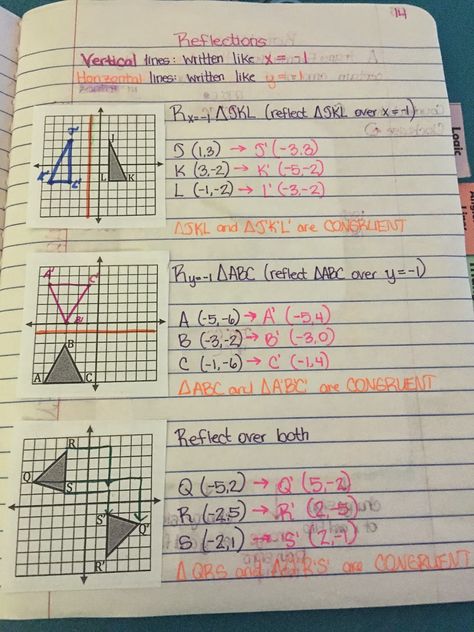 14
Reflections
Vertical lines: written like x = -1
Horizontal lines: written like y = -1
Rx=-1 ΔJKL (reflect ΔJKL over x = -1)
J (1,3) → J' (-3,3)
K (3,-2) → K' (-5,-2)
L (-1,-2) → L' (-3,-2)
ΔJKL and ΔJ'K'L' are CONGRUENT
J
L K
J'
K' L'
Ry=-1 ΔABC (reflect ΔABC over y = -1)
A (-5,-6) → A' (-5,4)
B (-3,-2) → B' (-3,0)
C (-1,-6) → C' (-1,4)
ΔABC and ΔA'B'C' are CONGRUENT
A' C'
B'
B
A C
Reflect over both
Q (-5,2) → Q' (5,-2)
R (-2,5) → R' (2,-5)
S (-2,1) → S' (2,-1)
ΔQRS and ΔQ'R'S' are CONGRUENT
R
Q
S
S'
Q'
R'
Logic